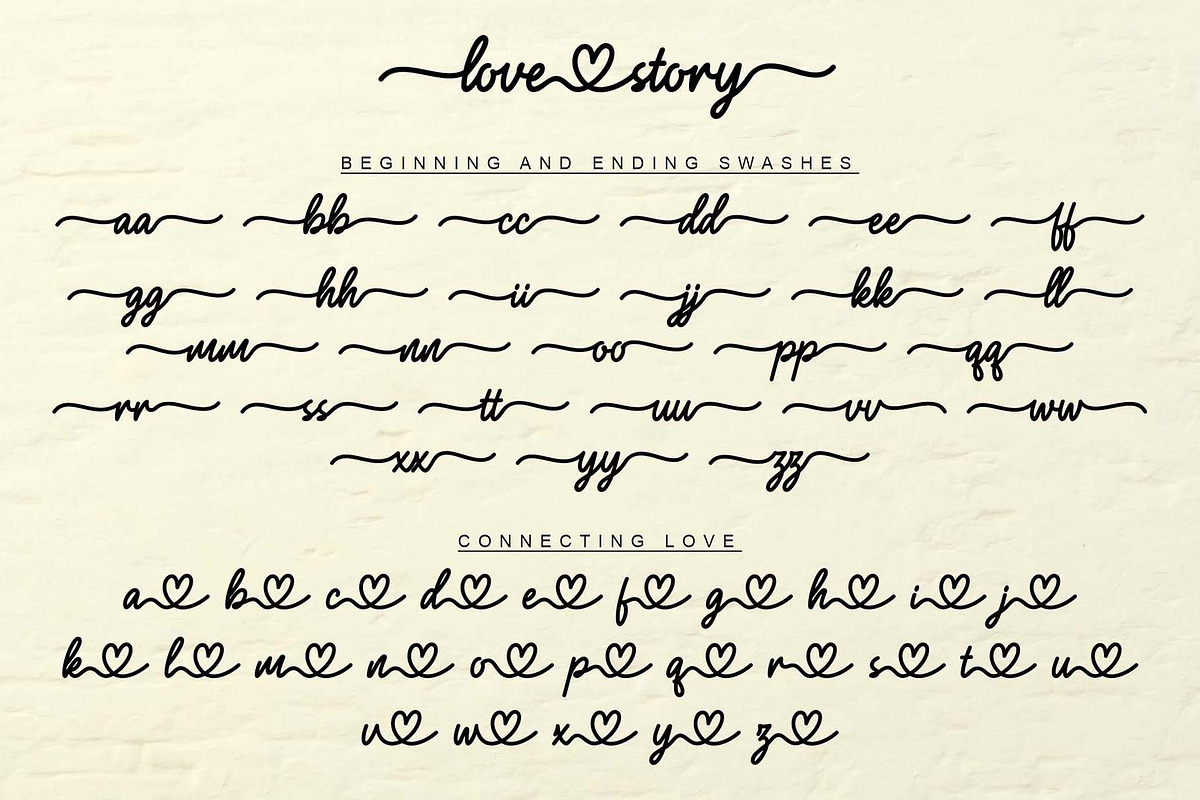 love story
BEGINNING AND ENDING SWASHES
aa bb cc dd ee ff
gg hh ii jj kk ll
mm nn oo pp qq
rr ss tt uu vv ww
xx yy zz
CONNECTING LOVE
a b c d e f g h i j
k l m n o p q r s t u
v w x y z